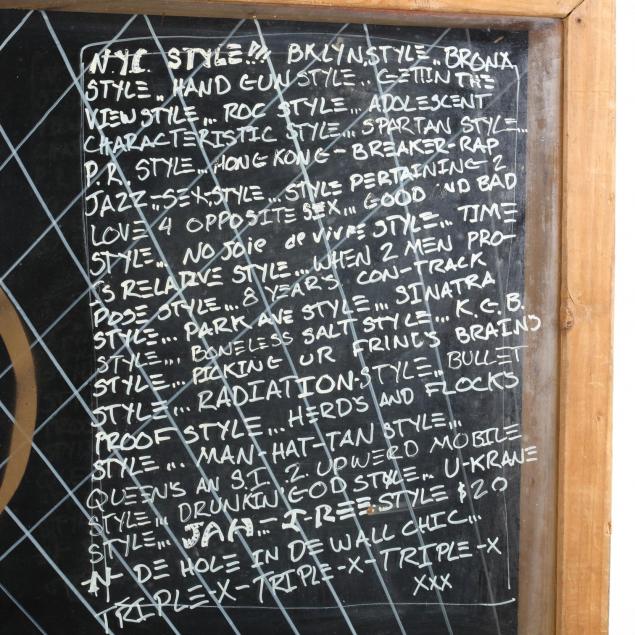 NYC STYLE!!! BKLYN.STYLE.. BRONX,
STYLE.. HAND GUN STYLE.. GETTIN THE
VIEW STYLE... ROC STYLE... ADOLESCENT
CHARACTERISTIC STYLE... SPARTAN STYLE...
P.R. STYLE... HONG KONG - BREAKER-RAP
JAZZ..SEX,STYLE... STYLE PERTAINING 2
LOVE 4 OPPOSITE SEX... GOOD ND BAD
STYLE... NO JOIE de VIVRE STYLE... TIME
IS RELATIVE STYLE... WHEN 2 MEN PRO-
POSE STYLE... 8 YEARS CON-TRACK
STYLE... PARK AVE STYLE... SINATRA
STYLE... BONELESS SALT STYLE... K.G.B.
STYLE... PICKING UR FRINDS BRAINS
STYLE... RADIATION-STYLE.. BULLET
PROOF STYLE... HERDS AND FLOCKS
STYLE... MAN-HAT-TAN STYLE...
QUEENS AN S.I. .2. UPWERD MOBILE
STYLE... DRUNKIN GOD STYLE... U-KRANE
STYLE... JAH-I-REE STYLE $20
N- DE HOLE IN DE WALL CHIC...
TRIPLE-X-TRIPLE-X-TRIPLE-X
XXX